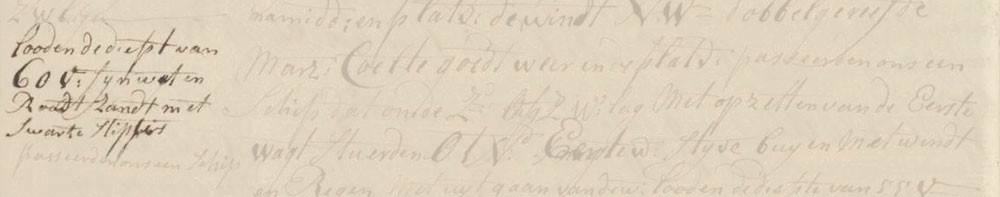 looden de diept van
60 V: fyn wit en
Roodt Zandt met
Swarte Stippen
passeerden ons een Schip
namidd: en plat: de windt NW dobbel gereefde
Marz: Coelte goedt weer in de plat: passeerden ons een
Schip dat onde Z W: lag Met opzetten van de Eerste
wagt Stuerden Ot Nd. Eerste w: Styve buyen met windt
en Regen Met uyt gaan van de w: looden de diepte van 55 V